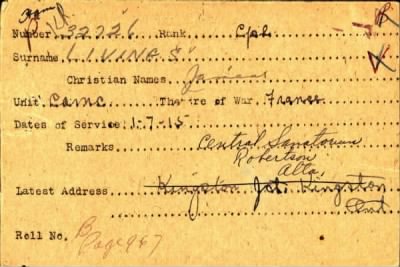 Number 32726 Rank Cpl
Surname LIVINGS
Christian Names James
Unit CAMC Theatre of War France
Dates of Service 1-7-15
Remarks Central Sanatorium
Robertson
Alta
Latest Address Kingston Jct. Kingston
Ont
Roll No. B Page 967